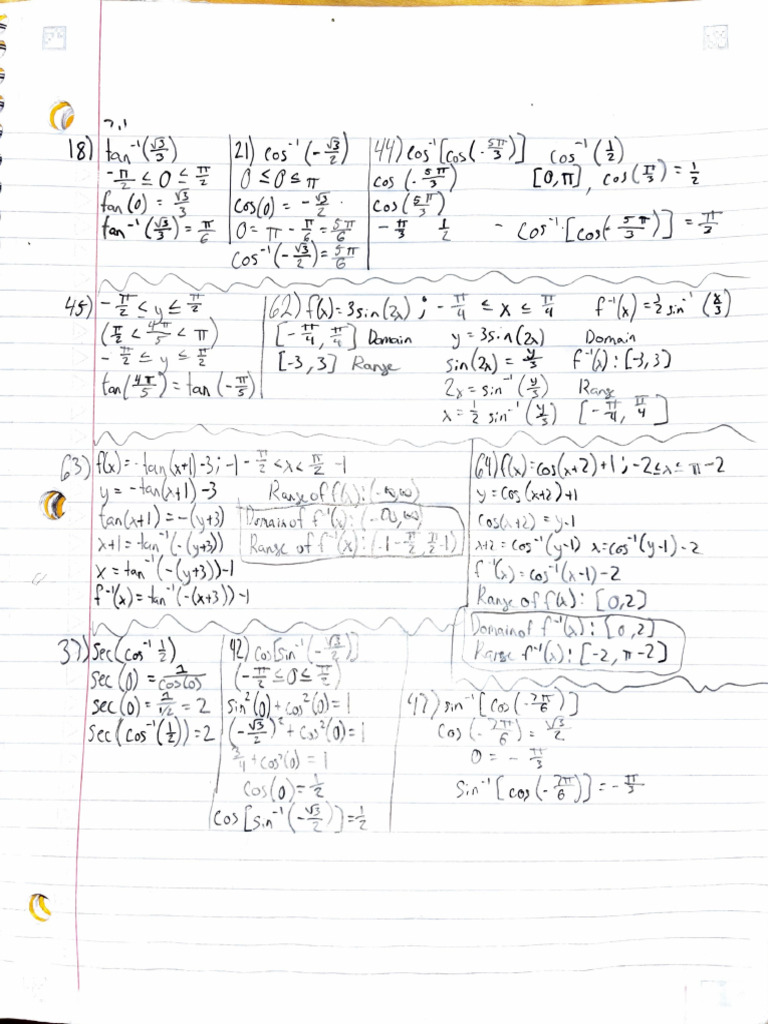 7.1
18) tan⁻¹(√3/3)
-π/2 ≤ θ ≤ π/2
tan(θ) = √3/3
tan⁻¹(√3/3) = π/6
21) cos⁻¹(-√3/2)
0 ≤ θ ≤ π
cos(θ) = -√3/2
θ = π - π/6 = 5π/6
cos⁻¹(-√3/2) = 5π/6
44) cos⁻¹[cos(-5π/3)] cos⁻¹(1/2)
cos(-5π/3) [0,π], cos(π/3) = 1/2
cos(5π/3)
-π/3 1/2 - cos⁻¹[cos(-5π/3)] = π/3
45) -π/2 ≤ y ≤ π/2
(π/2 < 4π/5 < π)
-π/2 ≤ y ≤ π/2
tan(4π/5) = tan(-π/5)
62) f(x) = 3sin(2x) ; -π/4 ≤ x ≤ π/4 f⁻¹(x) = 1/2 sin⁻¹(x/3)
[-π/4, π/4] Domain y = 3sin(2x) Domain
[-3, 3] Range sin(2x) = y/3 f⁻¹(x): [-3, 3]
2x = sin⁻¹(y/3) Range
x = 1/2 sin⁻¹(y/3) [-π/4, π/4]
63) f(x) = -tan(x+1)-3; -1-π/2 < x < π/2 -1
y = -tan(x+1)-3 Range of f(x): (-∞,∞)
tan(x+1) = -(y+3) Domain of f⁻¹(x): (-∞,∞)
x+1 = tan⁻¹(-(y+3)) Range of f⁻¹(x): (-1-π/2, π/2-1)
x = tan⁻¹(-(y+3))-1
f⁻¹(x) = tan⁻¹(-(x+3))-1
64) f(x) = cos(x+2)+1; -2≤x≤π-2
y = cos(x+2)+1
cos(x+2) = y-1
x+2 = cos⁻¹(y-1) x = cos⁻¹(y-1)-2
f⁻¹(x) = cos⁻¹(x-1)-2
Range of f(x): [0,2]
Domain of f⁻¹(x): [0,2]
Range f⁻¹(x): [-2, π-2]
37) sec(cos⁻¹ 1/2)
sec(θ) = 1/cos(θ)
sec(θ) = 1/1/2 = 2
sec(cos⁻¹(1/2)) = 2
42) cos[sin⁻¹(-√3/2)]
(-π/2 ≤ θ ≤ π/2)
sin²(θ) + cos²(θ) = 1
(-√3/2)² + cos²(θ) = 1
3/4 + cos²(θ) = 1
cos(θ) = 1/2
cos[sin⁻¹(-√3/2)] = 1/2
47) sin⁻¹[cos(-7π/6)]
cos(-7π/6) = √3/2
θ = -π/3
sin⁻¹[cos(-7π/6)] = -π/3